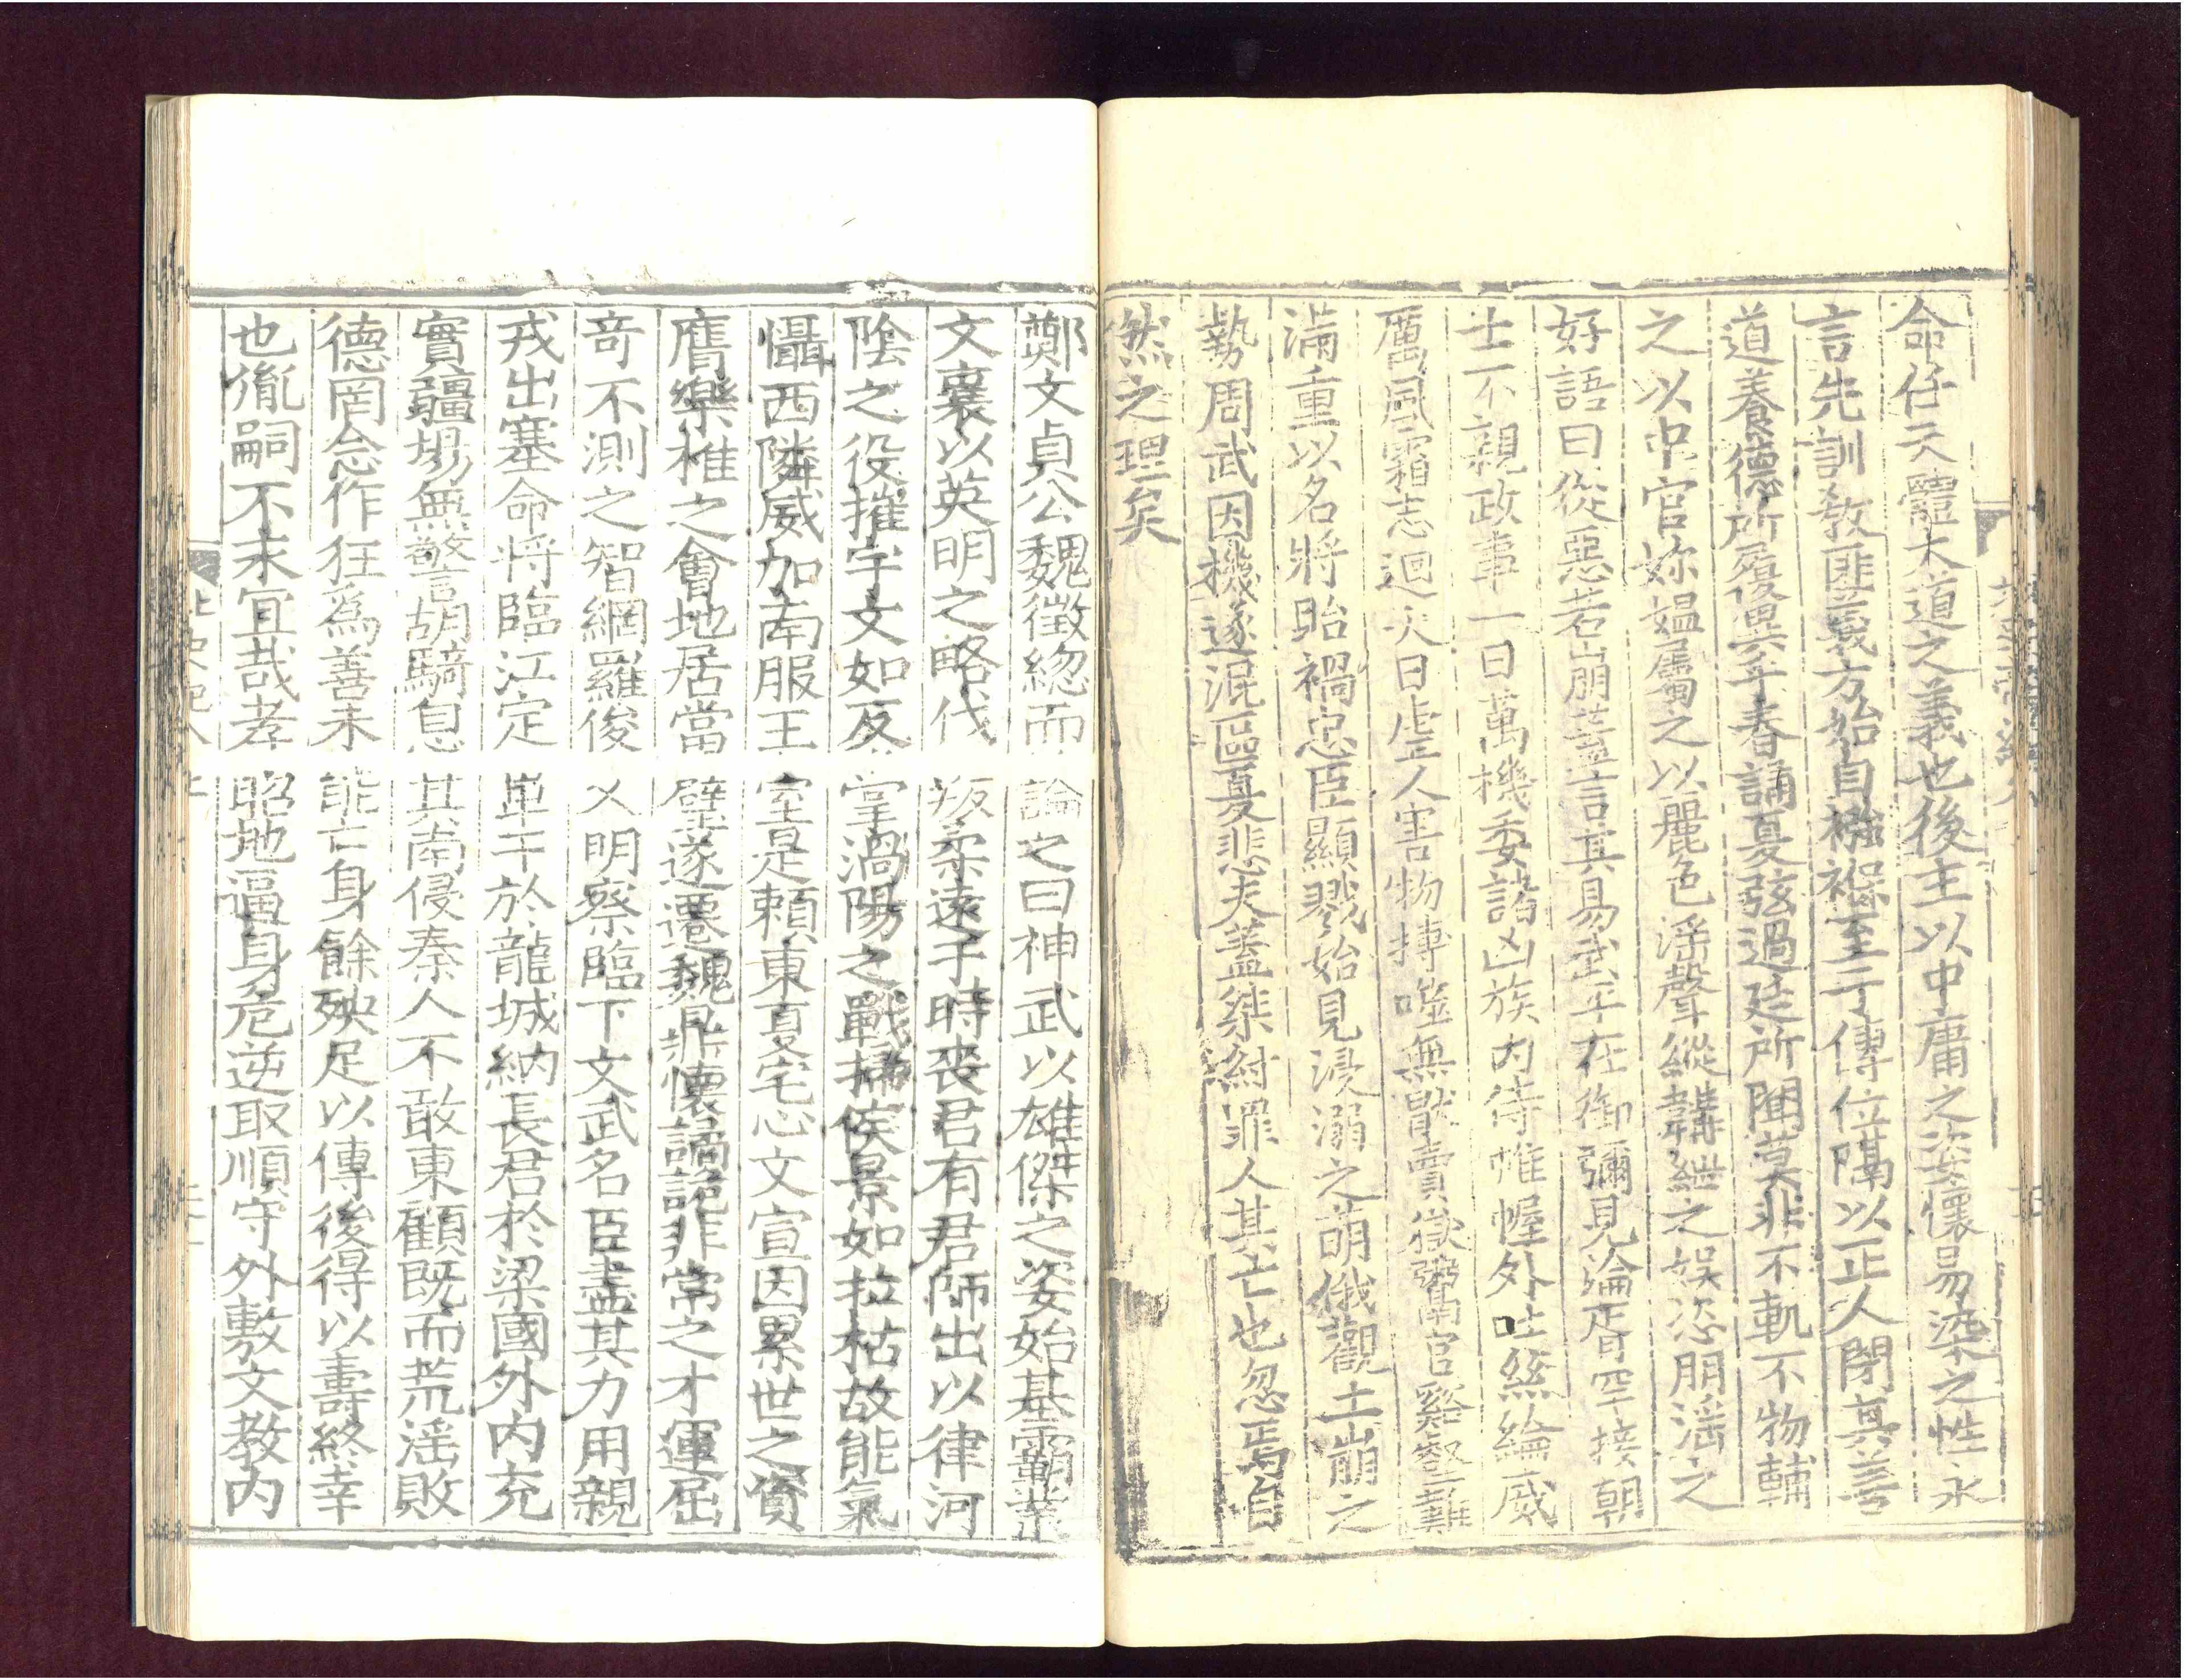 命任天體大道之義也後主以中庸之姿懷易染之性永
言先訓教匪義方始自襁褓至于傳位隔以正人閉其善
道養德所履異乎春誦夏弦過廷所聞莫非不軌不物輔
之以中官妳媪屬之以麗色淫聲縱韝紲之娛恣朋淫之
好語曰從惡若崩蓋言其易武平在御彌見淪胥罕接朝
士不親政事一日萬機委諸凶族内侍帷幄外吐絲綸威
厲風霜志迴天日虐人害物搏噬無猒賣獄鬻官谿壑難
滿重以名將貽禍忠臣顯戮始見浸溺之萌俄觀土崩之
勢周武因機遂混區夏悲夫蓋桀紂罪人其亡也忽焉自
然之理矣
鄭文貞公魏徵緫而論之曰神武以雄傑之姿始基霸業
文襄以英明之略伐叛柔遠于時喪君有君師出以律河
陰之役摧宇文如反掌渦陽之戰掃侯景如拉枯故能氣
懾西隣威加南服王室是頼東夏宅心文宣因累世之資
膺樂推之會地居當璧遂遷魏鼎懷譎詭非常之才運屈
竒不測之智網羅俊乂明察臨下文武名臣盡其力用親
戎出塞命將臨江定單于於龍城納長君於梁國外内充
實疆埸無警胡騎息其南侵秦人不敢東顧既而荒淫敗
德罔念作狂為善未能亡身餘殃足以傳後得以壽終幸
也胤嗣不永宜哉孝昭地逼身危逆取順守外敷文教内